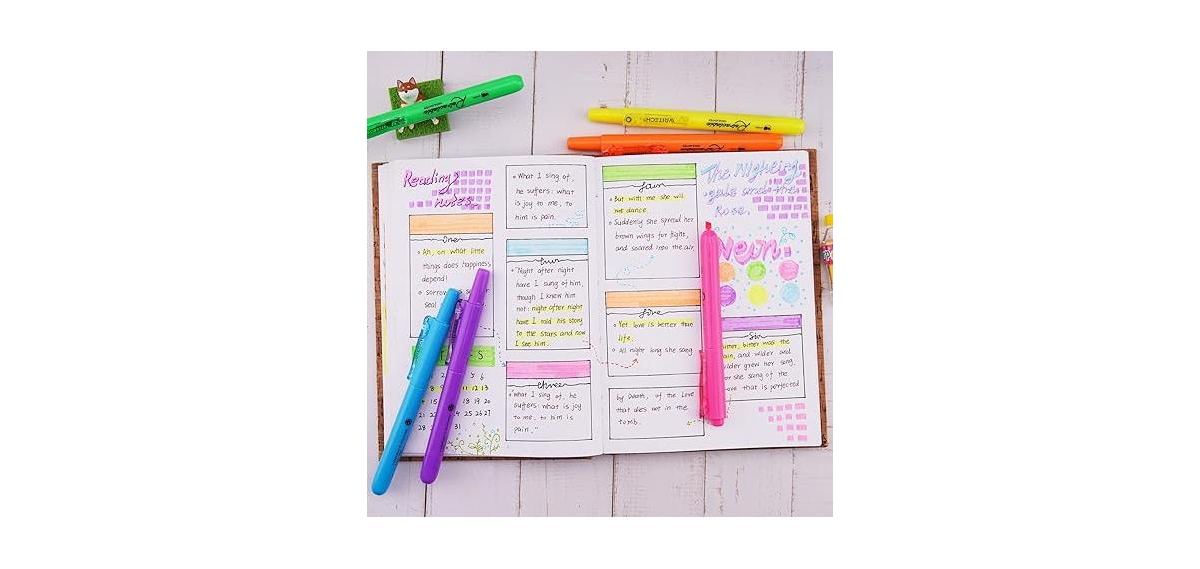 Reading
notes.
One
Ah, on what little
things does happiness
depend!
sorrow
seal
S
2 3 4 5 6
8 9 11 12 13
15 18 19 20
21 22 23 25 26 27
28 31
What I sing of,
he suffers: what
is joy to me, to
him is pain.
two
"Night after night
have I sung of him,
though I knew him
not: night after night
have I told his story
to the stars and now
I see him.
three
"What I sing of, he
suffers: what is joy
to me, to him is
pain."
four
But with me she will
not dance
Suddenly she spread her
brown wings for flight,
and soared into the air,
five
Yet love is better than
life.
All night long she sang
by Death, of the Love
that dies not in the
tomb.
The Nightin
gale and the
Rose.
Neon
Six
bitter was the
pain, and wilder and
wilder grew her song,
she sang of the
that is perfected
Retractable
WRITECH
Retractable